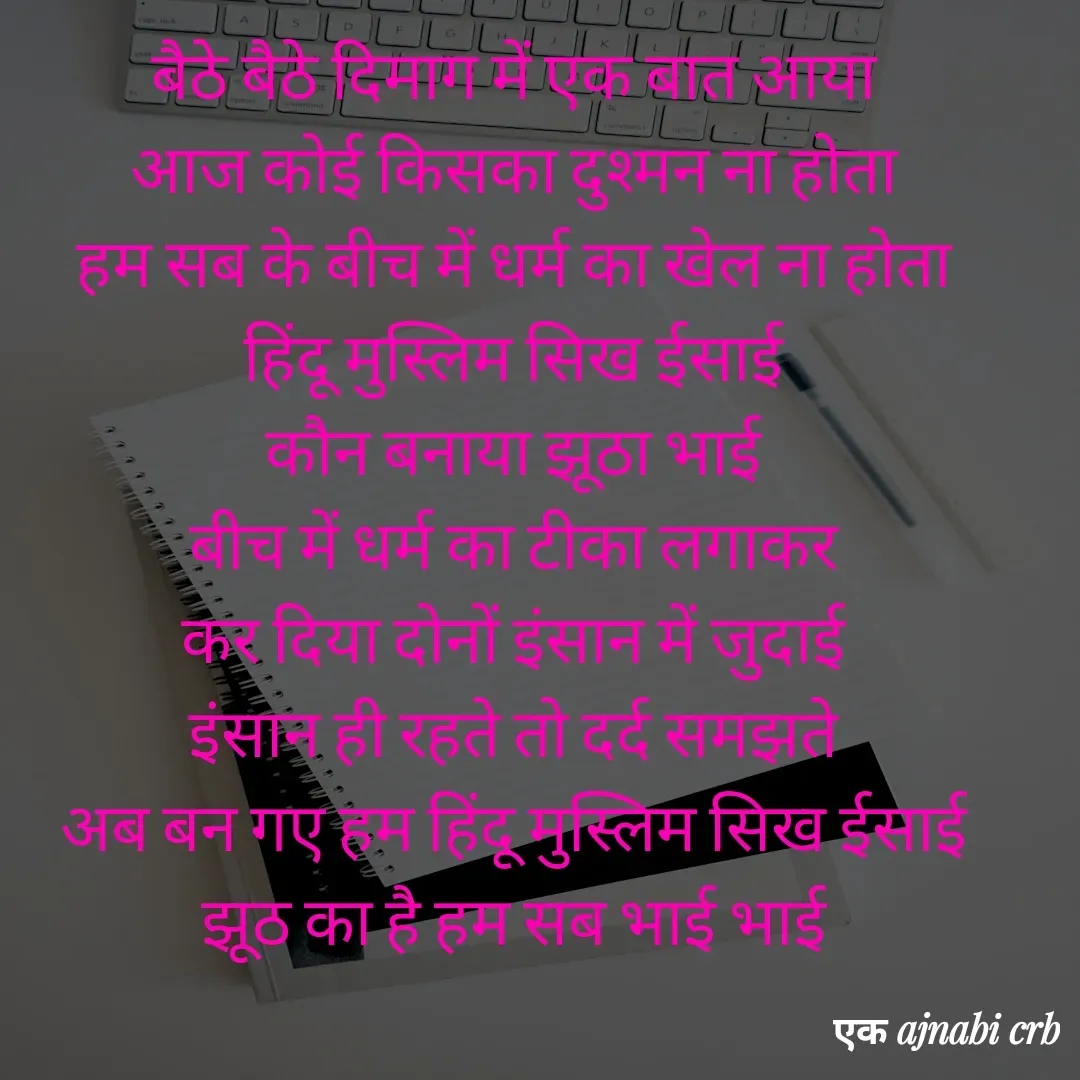 बैठे बैठे दिमाग में एक बात आया
आज कोई किसका दुश्मन ना होता
हम सब के बीच में धर्म का खेल ना होता
हिंदू मुस्लिम सिख ईसाई
कौन बनाया झूठा भाई
बीच में धर्म का टीका लगाकर
कर दिया दोनों इंसान में जुदाई
इंसान ही रहते तो दर्द समझते
अब बन गए हम हिंदू मुस्लिम सिख ईसाई
झूठ का है हम सब भाई भाई
एक ajnabi crb